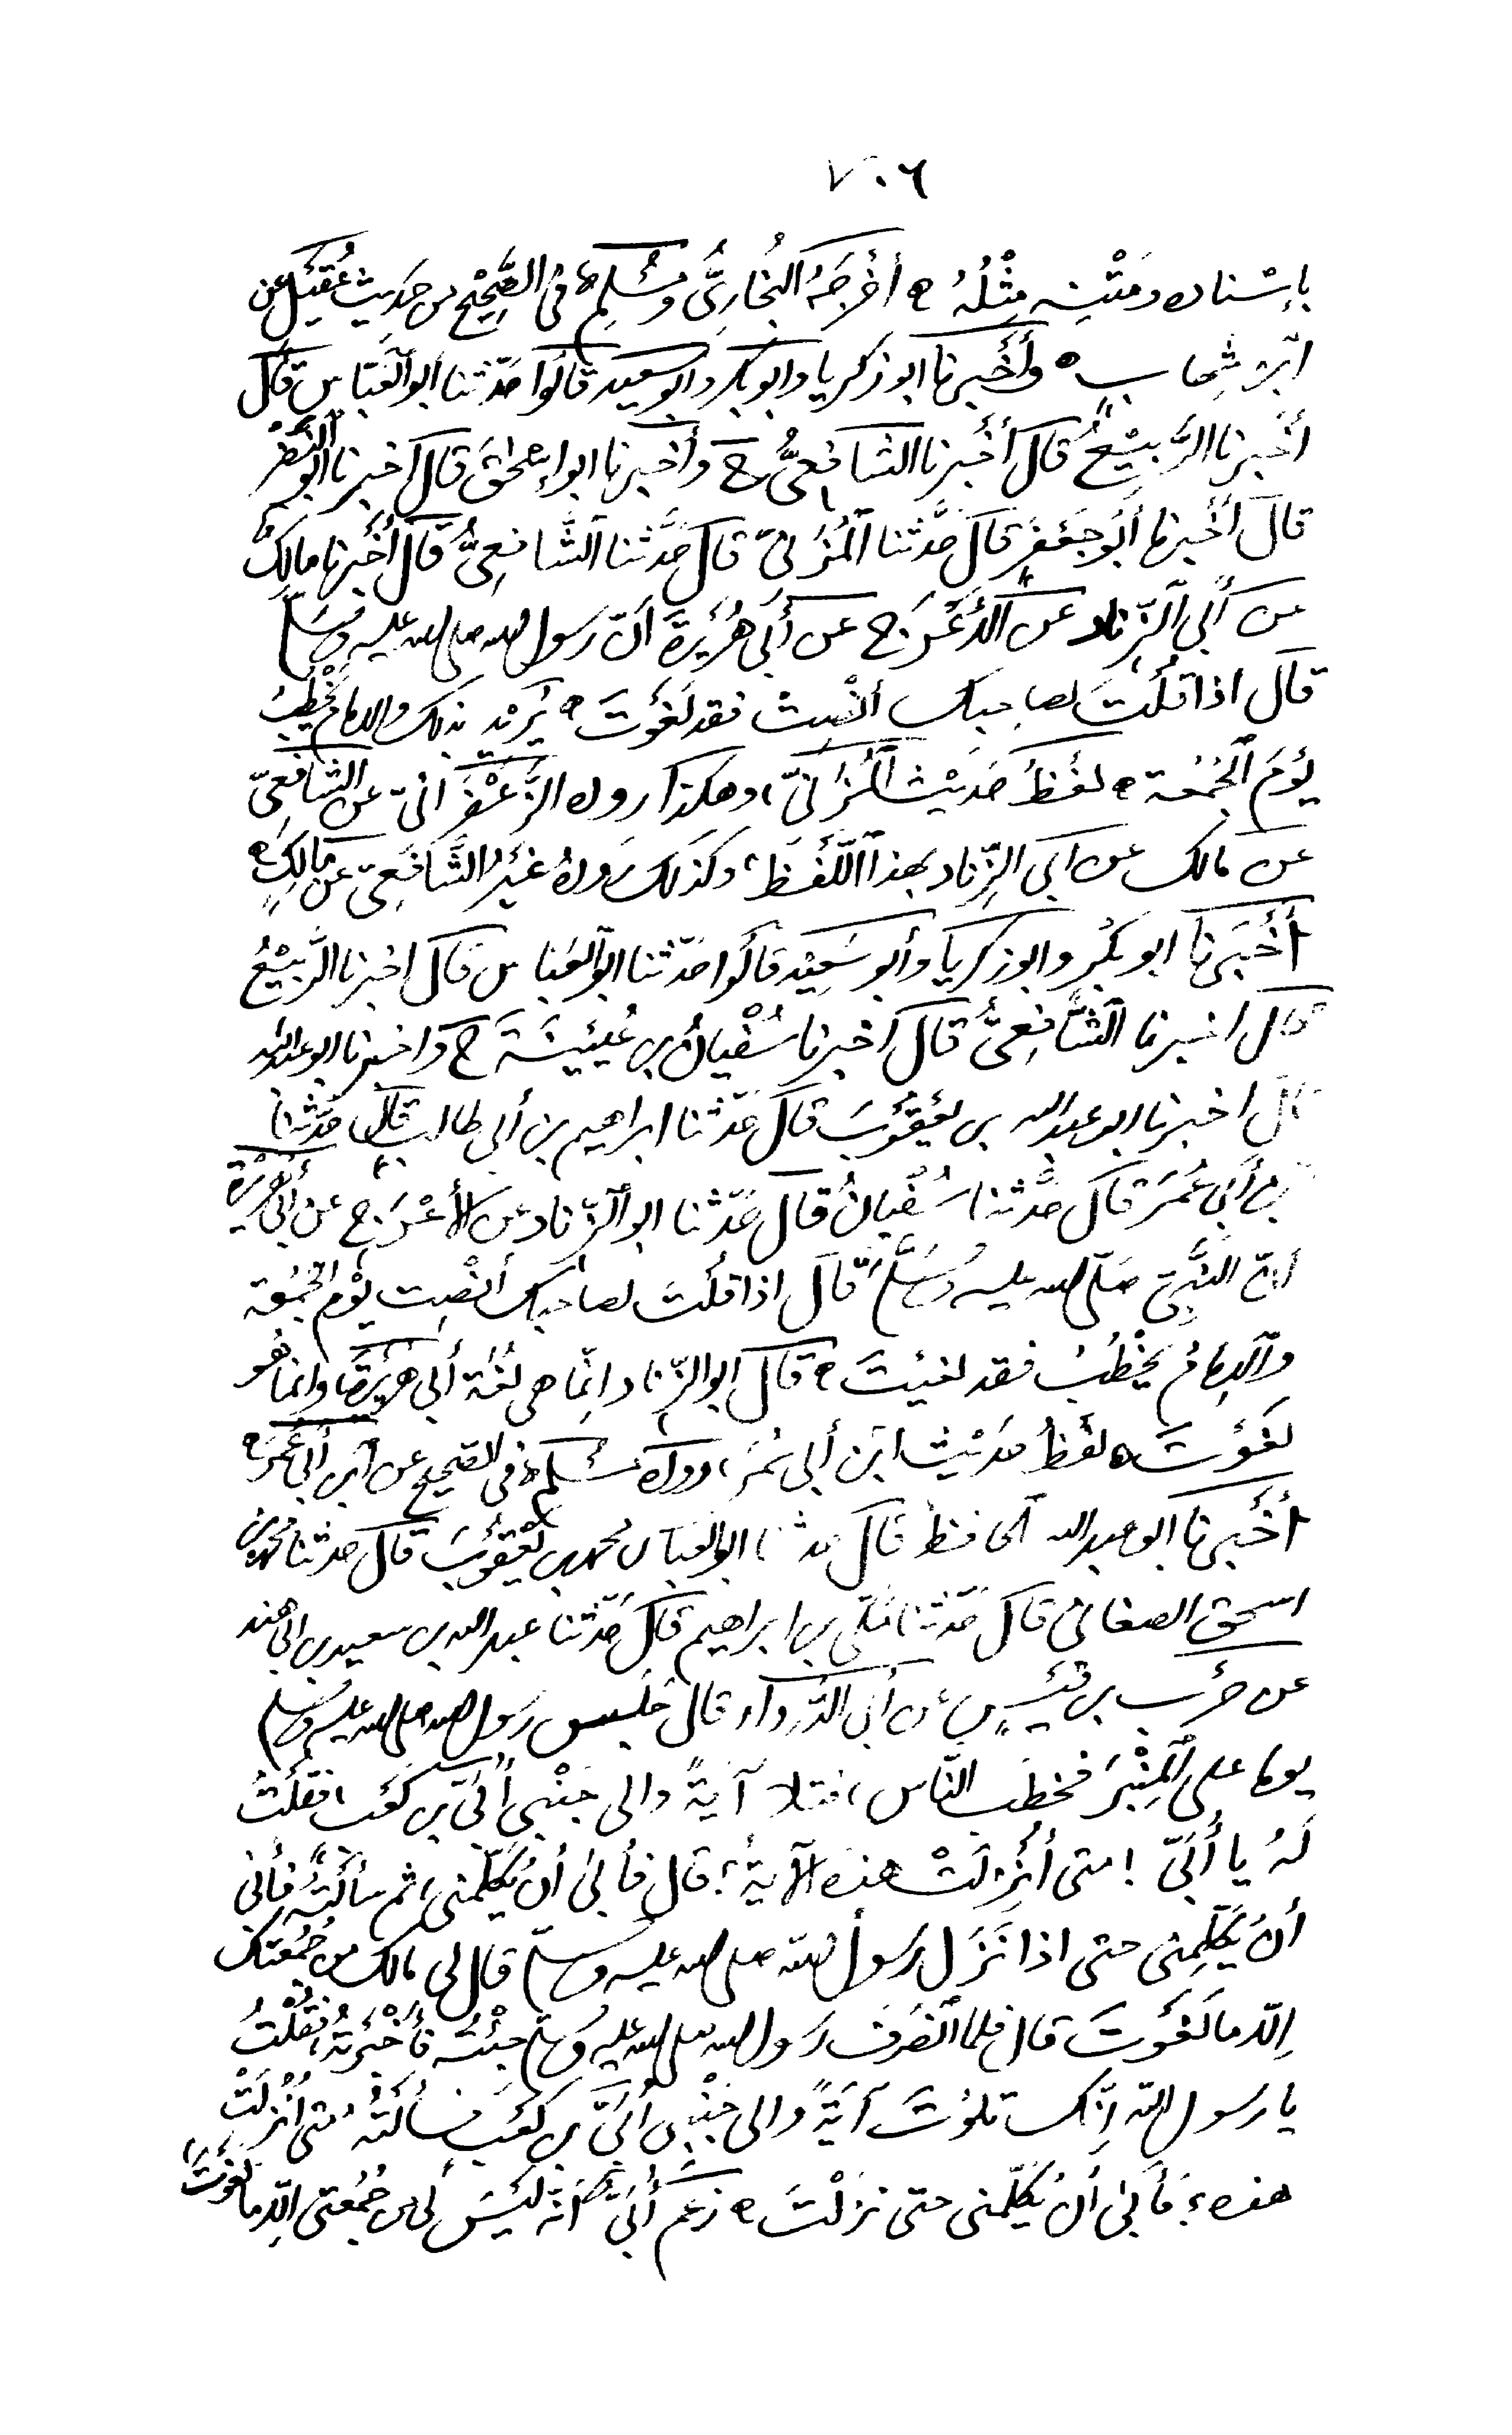 ٧٠٦
بإسناده ومَتْنِه مِثْلُهُ ه أَخْرَجَهُ البُخارِيُّ ومُسْلِمٌ في الصَّحِيْحِ من حَدِيث عُقَيْلٍ عن
ابن شِهابٍ ه وأَخْبَرنا ابو زكريا وابو بكر وابو سعيد قالُوا حَدّثنا ابو العَبّاس قال
أَخْبرنا الرَّبِيْعُ قال أَخْبرنا الشافِعيُّ ح وأخبرنا ابو إسْحٰقَ قال أخبرنا ابو النَّضْر
قالَ أَخْبرنا أبو جَعْفَرٍ قال حَدَّثنا المُزَنِيّ قال حَدَّثنا الشَّافِعِيُّ قال أَخْبرنا مالِكٌ
عن أَبي الزّناد عن الأَعْرَج عن أَبي هُرَيْرَةَ أَنّ رَسول الله صلى الله عليه وسَلم
قال اذا قُلْتَ لصاحِبك أَنْصِتْ فقد لَغَوْتَ ه يُرِيْد بذلك والإمام يَخْطُبُ
يَوْمَ الجُمُعة ه لَفْظُ حَدِيْث المُزَنيّ، وهكذا رواه الزَّعْفَرانيّ عن الشافِعِيّ
عن مالك عن ابي الزّناد بهذا اللَّفْظ، وكذلك رَواهُ غَيْرُ الشَّافِعِيّ عن مالِكٍ ه
أَخْبَرنا ابو بَكْرٍ وابو زكريا وأبو سَعِيْد قالُوا حَدّثنا ابو العَبّاس قال اخبرنا الرَّبِيْعُ
قال اخبرنا الشَّافِعِيُّ قال اخبرنا سُفْيانُ بن عُيَيْنَةَ ح واخبرنا ابو عبدالله
قال اخبرنا ابو عبدالله بن يَعْقُوْبَ قال حَدّثنا ابراهيم بن أبي طالب قال حَدّثنا
بن أَبي عُمَرَ قال حَدَّثنا سُفْيانُ قال حَدّثنا ابو الزّناد عن الأَعْرَج عن أبي هُرَيْرَة
أنّ النَّبِيّ صَلّى الله عليه وسَلَّم قال اذا قُلْتَ لصاحِبك أَنْصِت يَوْم الجُمُعة
والإمامُ يَخْطُبُ فقد لغيتَ ه قال ابو الزّناد إنّما هى لُغَة أبي هُرَيْرَةَ، وانما هُو
لَغَوْتَ ه لَفْظُ حَدِيْث ابن أبي عُمَرَ، ورواه مُسْلِمٌ في الصّحيح عن ابن أبي عُمَرَ ه
أَخْبَرنا ابو عبدالله الحافظ قال حدثنا ابو العبّاس محمد بن يَعْقُوْبَ قال حدثنا محمد بن
اسحق الصغاني قال حَدّثنا مَكّي بن ابراهيم قال حَدّثنا عبدالله بن سعيد بن ابي هند
عن حَرْب بن قَيْسٍ عن أبي الدَّرداء قال جَلَس رسول الله صلى الله عليه وسلم
يوما على المِنْبَر فخطَب النّاس، فتلا آيَةً والى جَنْبي أُبَيّ بن كَعْب، فقُلْتُ
لَهُ يا أُبَيّ ! متى أُنْزِلَتْ هذه الآية؟ قال فأَبىٰ أنْ يُكَلِّمَني، ثم سأَلْتُهُ فأبىٰ
أنْ يُكَلِّمني حتى اذا نَزَلَ رَسول الله صلى الله عليه وسلم قال لي مالك من جُمُعتك
إلّا ما لَغَوْتَ قال فلما انْصَرفَ رَسول الله صلى الله عليه وسلم جِئْتُه فأَخْبَرْتُهُ، فقُلْتُ
يا رَسول الله إنّك تلوْتَ آيَةً والى جَنْبِي أُبَيّ بن كَعْبٍ فسأَلْتُهُ متى أُنْزِلَتْ
هذه؟ فأَبىٰ أنْ يُكَلِّمني حتى نَزَلْتَ ه زعَم أُبَيٌّ أَنّه لَيْسَ لي من جُمُعتي إلّا ما لَغَوْتُ،